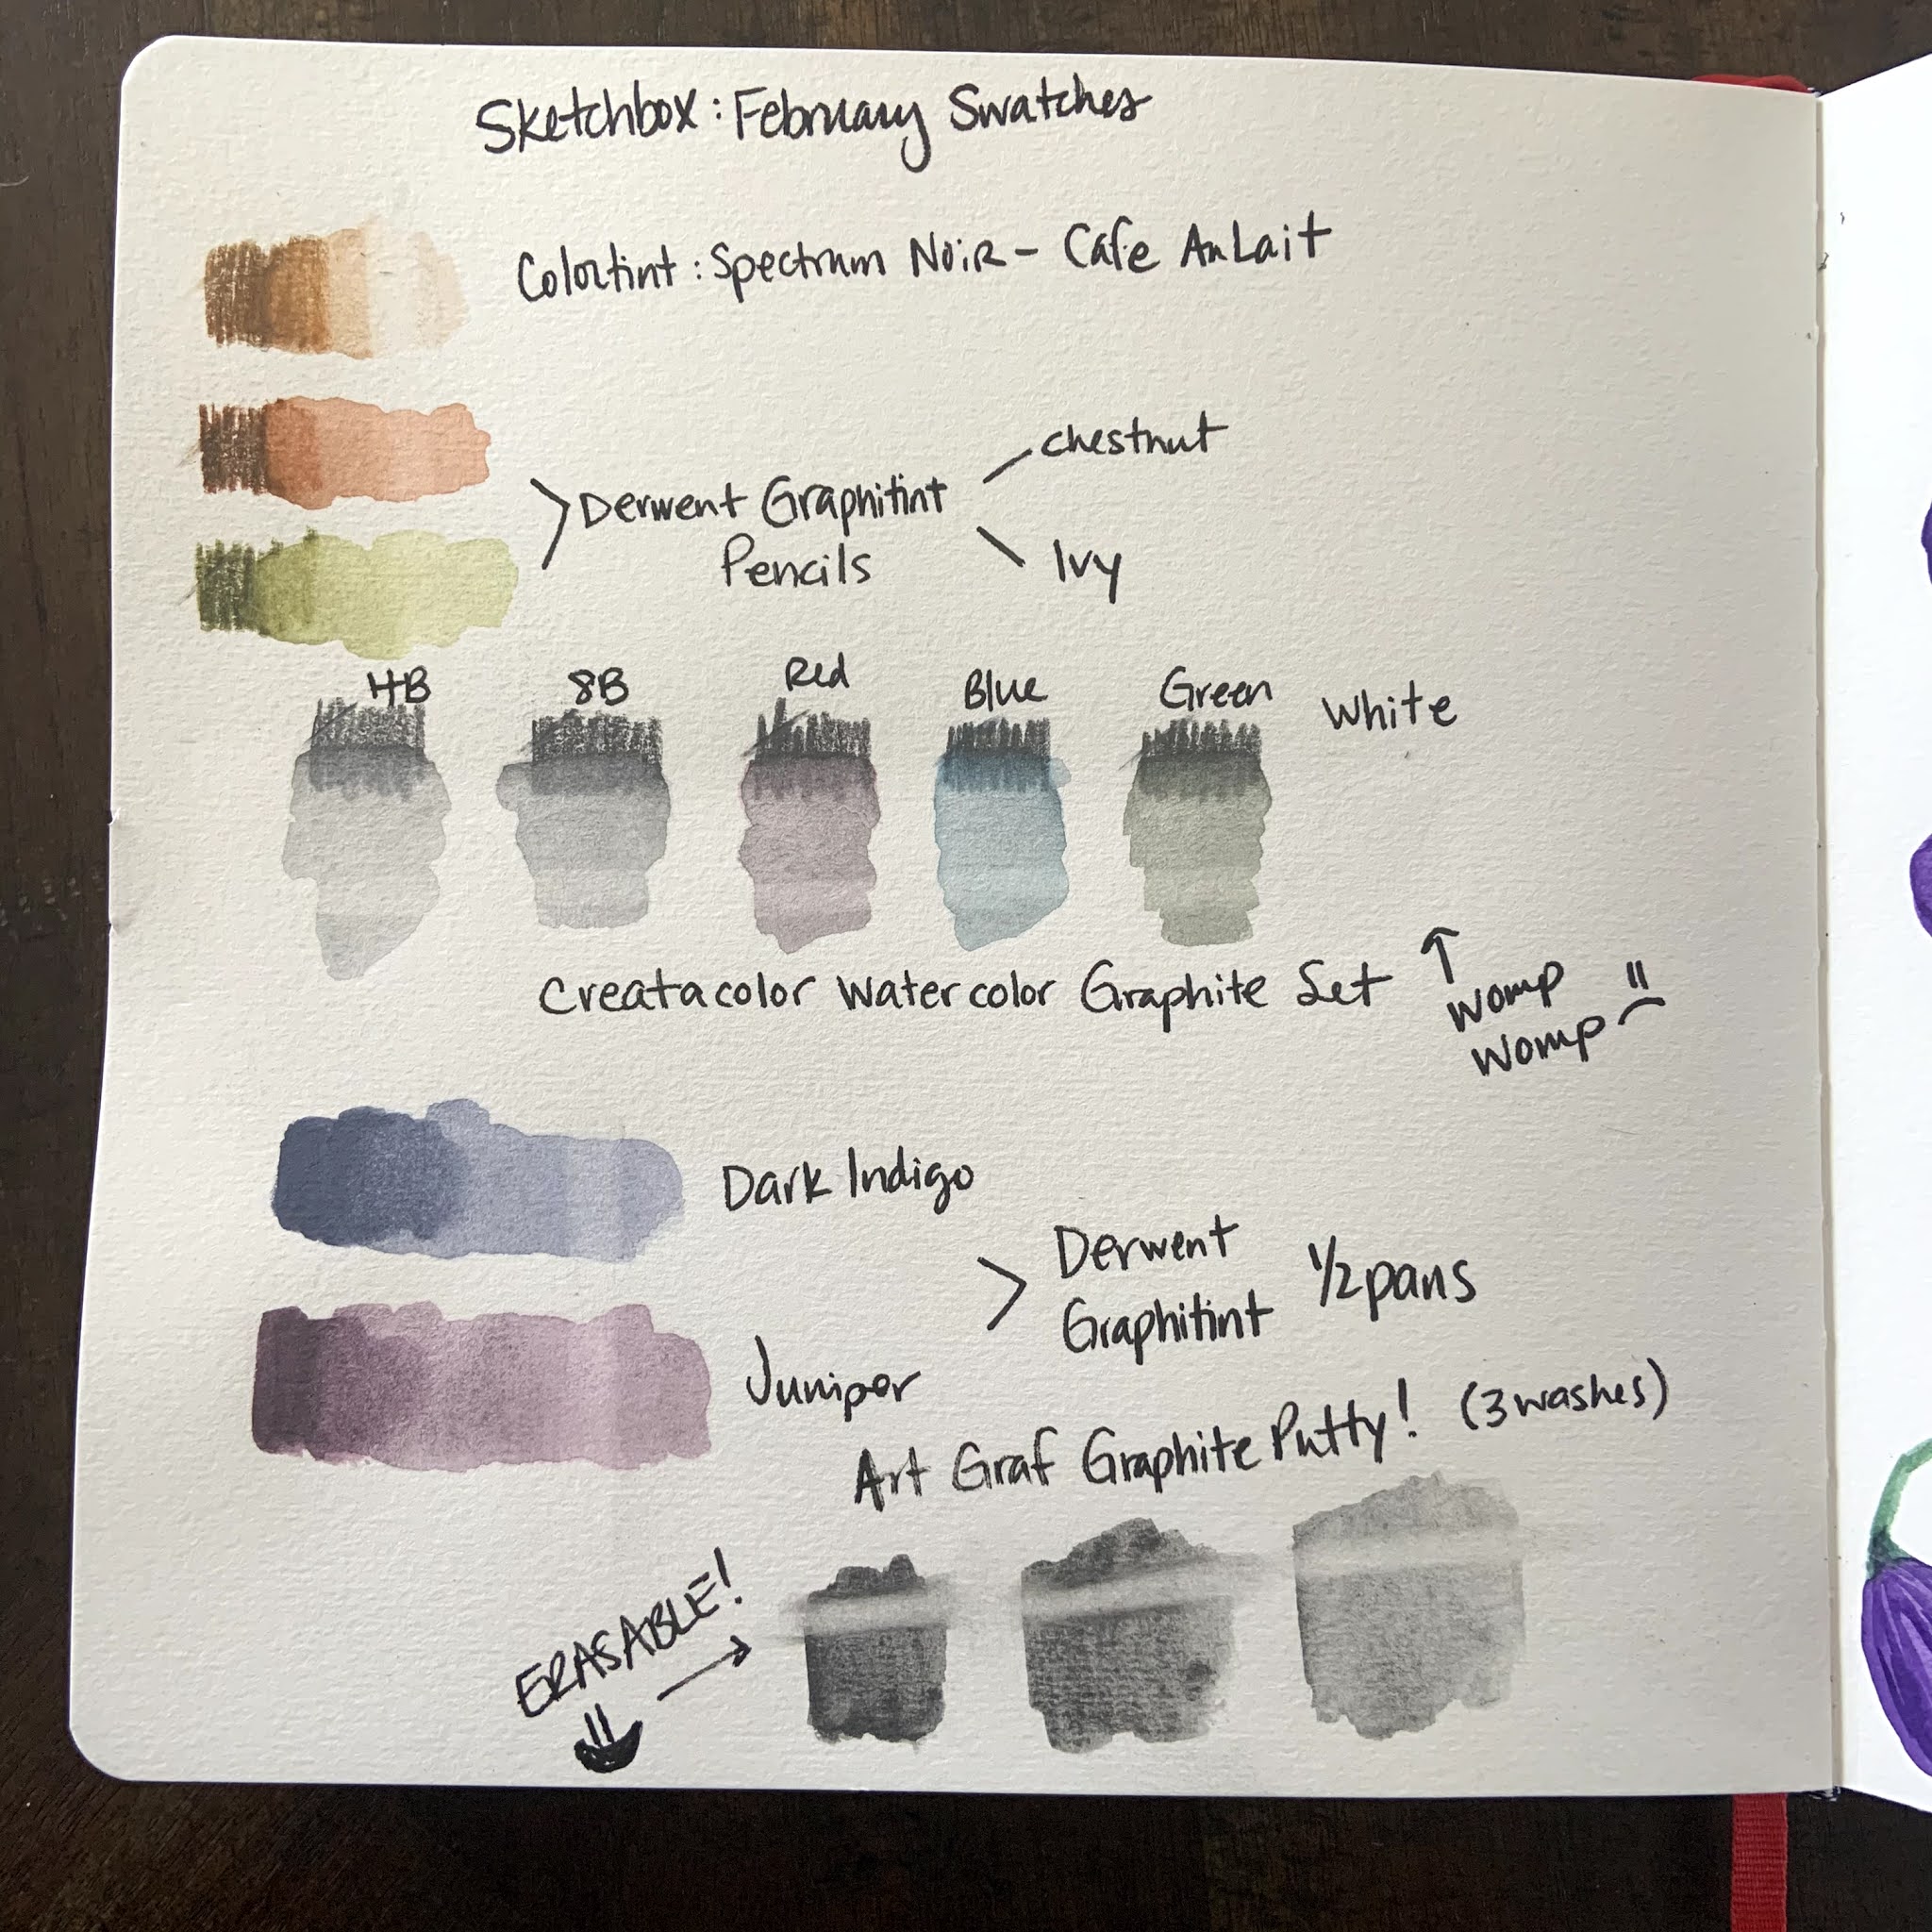 Sketchbox: February Swatches
Colortint: Spectrum Noir - Cafe Au Lait
Derwent Graphitint
Pencils
chestnut
Ivy
4B 8B Red Blue Green White
Creatacolor Watercolor Graphite Set
↑
Womp
Womp
Dark Indigo
Juniper
Derwent
Graphitint
1/2 pans
Art Graf Graphite Putty! (3 washes)
ERASABLE!